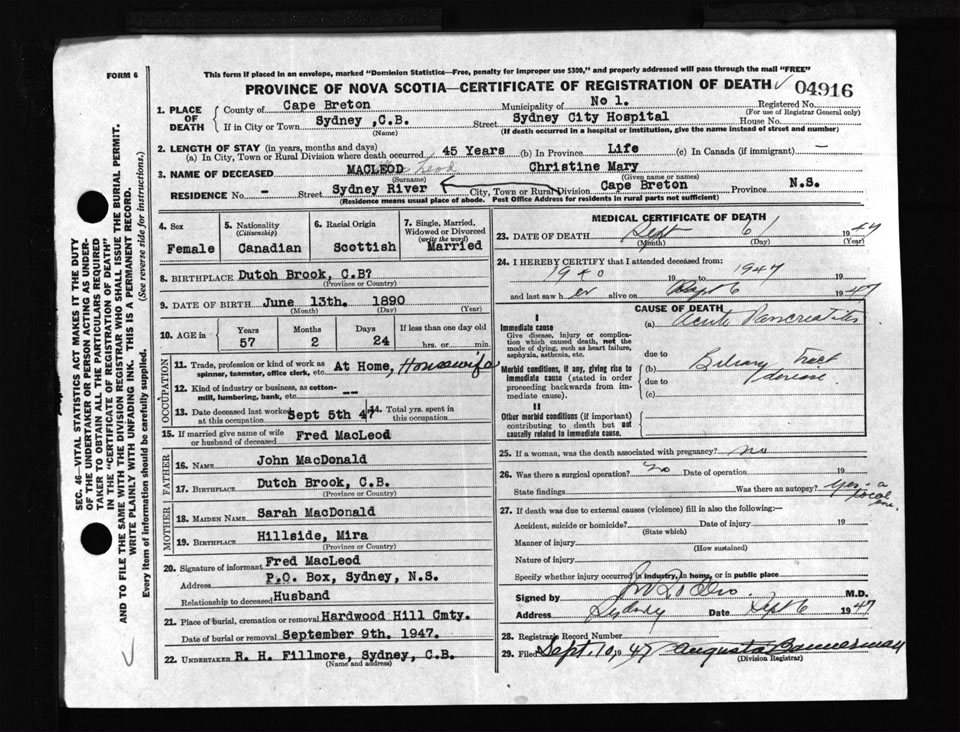 FORM 6
This form if placed in an envelope, marked "Dominion Statistics—Free, penalty for improper use $300," and properly addressed will pass through the mail "FREE"
PROVINCE OF NOVA SCOTIA—CERTIFICATE OF REGISTRATION OF DEATH 04916
1. PLACE OF DEATH
County of Cape Breton Municipality of No 1. Registered No.
(For use of Registrar General only)
If in City or Town Sydney ,C.B. Street Sydney City Hospital House No.
(Name) (If death occurred in a hospital or institution, give the name instead of street and number)
2. LENGTH OF STAY (in years, months and days)
(a) In City, Town or Rural Division where death occurred 45 Years (b) In Province Life (c) In Canada (if immigrant) —
3. NAME OF DECEASED MACLEOD Christine Mary
(Surname) (Given name or names)
RESIDENCE No. - Street Sydney River City, Town or Rural Division Cape Breton Province N.S.
(Residence means usual place of abode. Post Office Address for residents in rural parts not sufficient)
4. Sex Female
5. Nationality (Citizenship) Canadian
6. Racial Origin Scottish
7. Single, Married, Widowed or Divorced (write the word) Married
8. BIRTHPLACE Dutch Brook, C.B?
(Province or Country)
9. DATE OF BIRTH June 13th. 1890
(Month) (Day) (Year)
10. AGE in Years Months Days If less than one day old
57 2 24 hrs. or min.
OCCUPATION
11. Trade, profession or kind of work as spinner, teamster, office clerk, etc. At Home, Housewife
12. Kind of industry or business, as cotton-mill, lumbering, bank, etc. --
13. Date deceased last worked at this occupation Sept 5th 47 14. Total yrs. spent in this occupation
15. If married give name of wife or husband of deceased Fred MacLeod
FATHER
16. NAME John MacDonald
17. BIRTHPLACE Dutch Brook, C.B.
(Province or Country)
MOTHER
18. MAIDEN NAME Sarah MacDonald
19. BIRTHPLACE Hillside, Mira
(Province or Country)
20. Signature of informant Fred MacLeod
Address P.O. Box, Sydney, N.S.
Relationship to deceased Husband
21. Place of burial, cremation or removal Hardwood Hill Cmty.
Date of burial or removal September 9th. 1947.
22. UNDERTAKER R. H. Fillmore, Sydney, C.B.
(Name and address)
MEDICAL CERTIFICATE OF DEATH
23. DATE OF DEATH Sept 6 1947
(Month) (Day) (Year)
24. I HEREBY CERTIFY that I attended deceased from:
1940 19 to 1947 19
and last saw h er alive on Sept 6 1947
CAUSE OF DEATH
I
Immediate cause
Give disease, injury or complication which caused death, not the mode of dying, such as heart failure, asphyxia, asthenia, etc.
(a) Acute Pancreatitis
due to
Morbid conditions, if any, giving rise to immediate cause (stated in order proceeding backwards from immediate cause).
(b) Biliary tract disease
due to
(c)
II
Other morbid conditions (if important) contributing to death but not causally related to immediate cause.
25. If a woman, was the death associated with pregnancy? no
26. Was there a surgical operation? no Date of operation 19
State findings Was there an autopsy? yes - a local
27. If death was due to external causes (violence) fill in also the following:—
Accident, suicide or homicide? Date of injury 19
(State which)
Manner of injury
(How sustained)
Nature of injury
Specify whether injury occurred in industry, in home, or in public place
Signed by M.D.
Address Sydney Date Sept 6 1947
28. Registrars Record Number
29. Filed Sept. 10, 1947 Augusta Bannerman
(Division Registrar)
SEC. 46—VITAL STATISTICS ACT MAKES IT THE DUTY
OF THE UNDERTAKER OR PERSON ACTING AS UNDER-
TAKER TO OBTAIN ALL THE PARTICULARS REQUIRED
IN THE "CERTIFICATE OF REGISTRATION OF DEATH"
AND TO FILE THE SAME WITH THE DIVISION REGISTRAR WHO SHALL ISSUE THE BURIAL PERMIT.
WRITE PLAINLY WITH UNFADING INK. THIS IS A PERMANENT RECORD.
Every item of information should be carefully supplied. (See reverse side for instructions.)